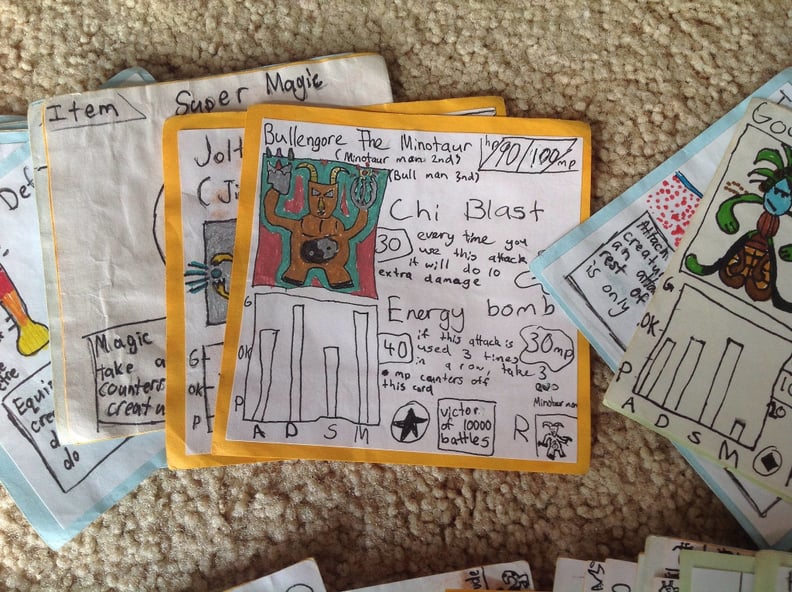 Item
Super Magic
Magic
take a
counters
creatu
Def
Equi
cre
d
do
Jolt
(Ji
G
OK
P
Bullengore The Minotaur
(Minotaur man 2nd)
(Bull man 3nd)
hp 90/100 mp
Chi Blast
30
every time you
use this attack
it will do 10
extra damage
Energy bomb
40
if this attack is
used 3 times
in a row, take 3
mp counters off
this card
30mp
G
OK
P
A D S M
victor
of 10000
battles
R
Minotaur man
Attach
creatu
an atta
rest of
is only
Goo
G
OK
P
A D S M